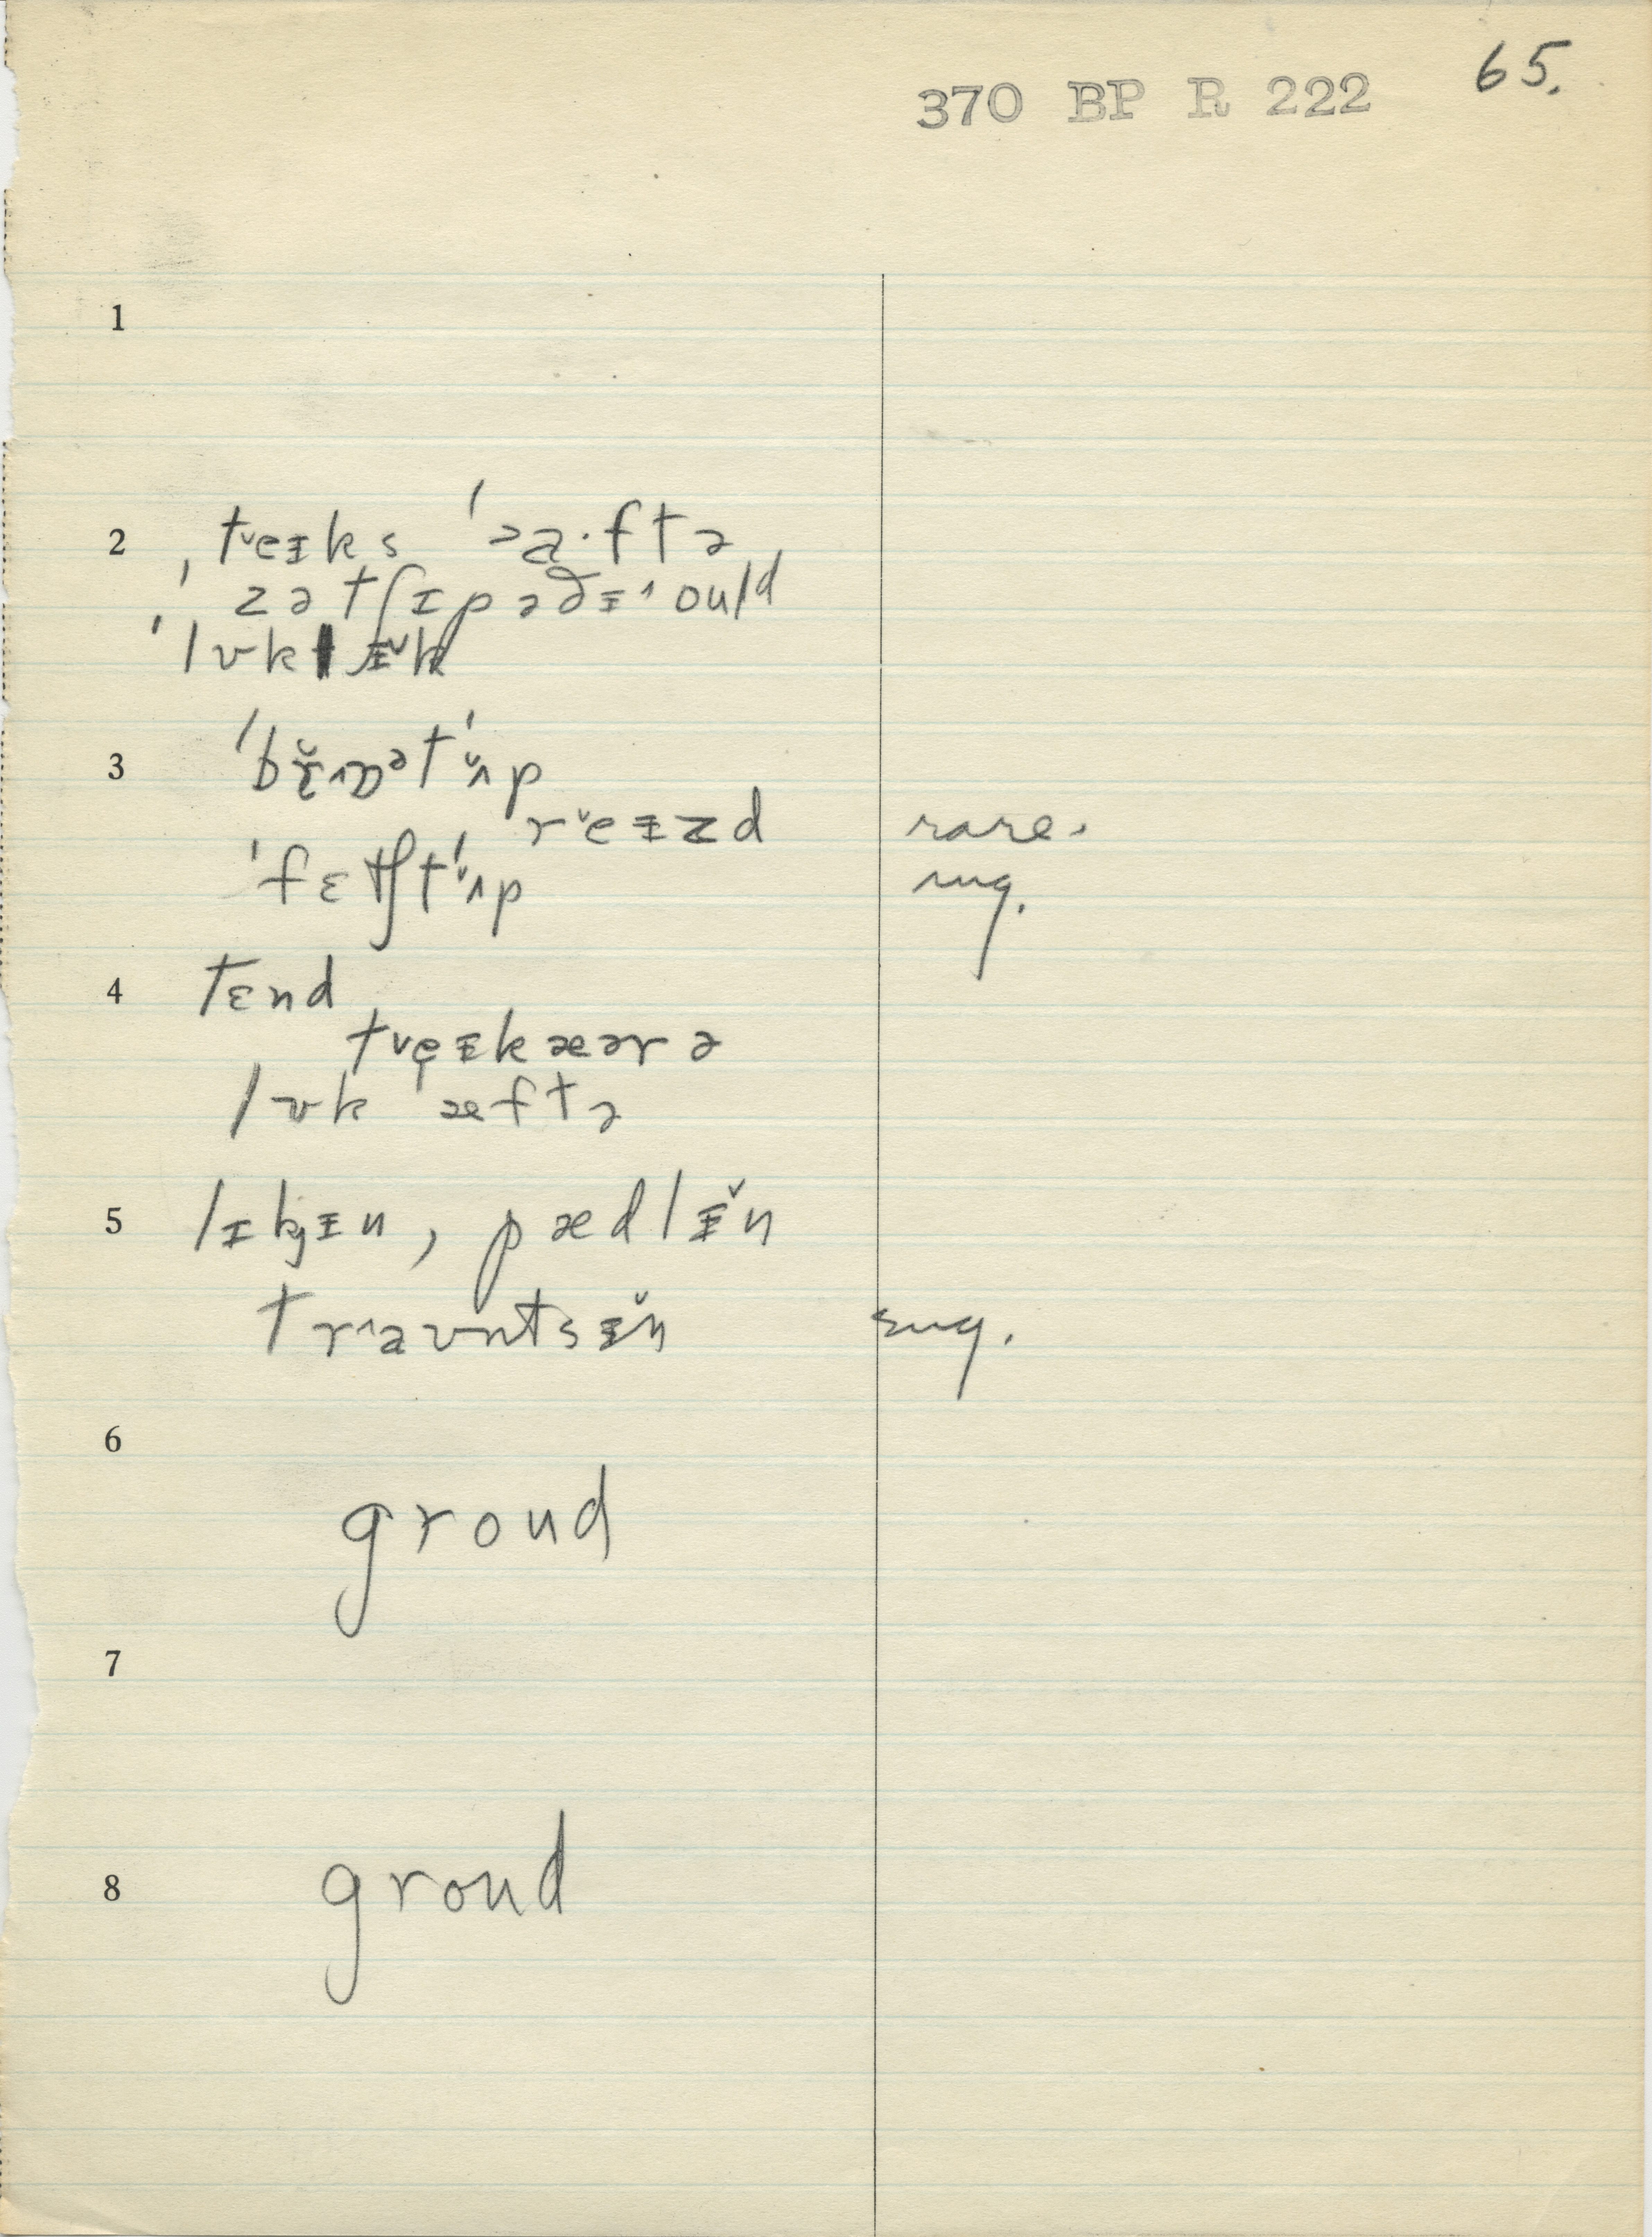 65.
370 BP R 222
1
2 ˌtˇeɪks ˈɔa·ftə
ˈzətʃɪpəðɪˈould
ˈlʊklɪ̌k
3 ˈbrʌɒətˈʌ̌p
rˇeɪzd rare.
ˈfɛtʃtˈʌ̌p sug.
4 tɛnd
tˇeɪkæərə
lʊk ˈæftə
5 lɪkɪn, pædlɪ̌n
trˈaʊntsɪ̌n sug.
6
groud
7
8 groud